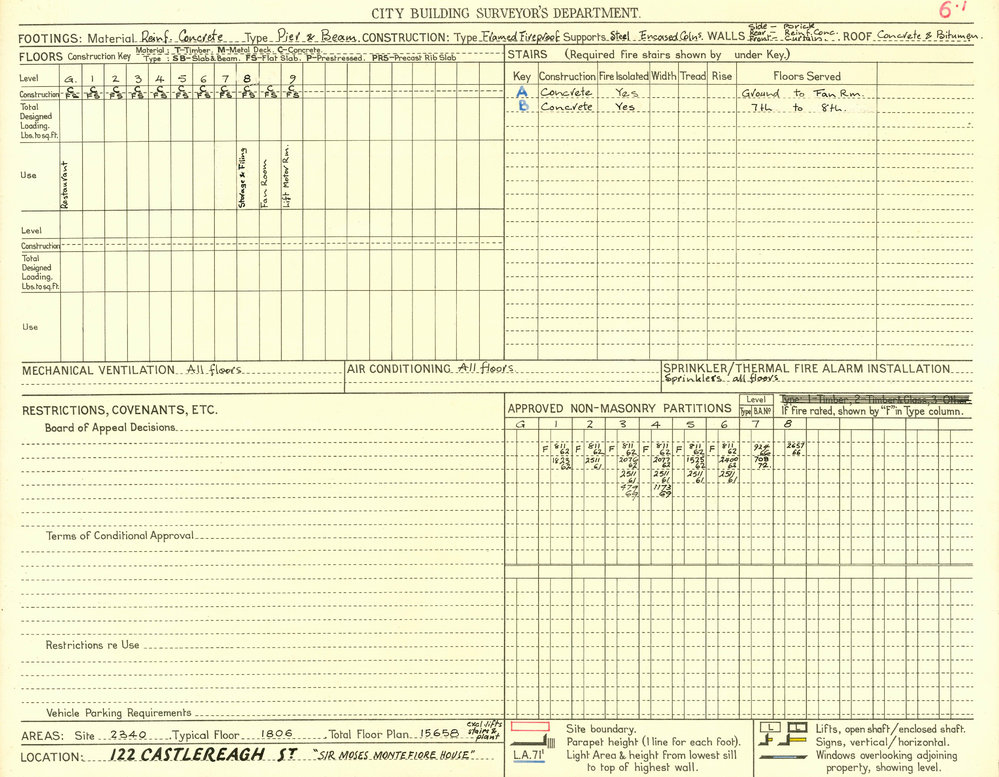 CITY BUILDING SURVEYOR'S DEPARTMENT.
6.1
FOOTINGS: Material Reinf. Concrete Type Pier & Beam. CONSTRUCTION: Type Framed Fireproof Supports Steel Encased Colns. WALLS Side - Brick Rear - Reinf. Conc. Front - Curtain. ROOF Concrete & Bitumen.
FLOORS Construction Key Material: T-Timber. M-Metal Deck. C-Concrete.
Type: SB-Slab & Beam. FS-Flat Slab. P-Prestressed. PRS-Precast Rib Slab
Level G. 1 2 3 4 5 6 7 8 9
Construction C C C C C C C C C C
FS FS FS FS FS FS FS FS FS FS
Total
Designed
Loading.
Lbs. to sq. ft.
Use
Restaurant
Storage & Filing
Fan Room
Lift Motor Rm.
Level
Construction
Total
Designed
Loading.
Lbs. to sq. ft.
Use
STAIRS (Required fire stairs shown by under Key.)
Key Construction Fire Isolated Width Tread Rise Floors Served
A Concrete Yes Ground to Fan Rm.
B Concrete Yes 7th to 8th.
MECHANICAL VENTILATION All floors
AIR CONDITIONING All floors
SPRINKLER/THERMAL FIRE ALARM INSTALLATION
Sprinklers all floors
RESTRICTIONS, COVENANTS, ETC.
Board of Appeal Decisions.
Terms of Conditional Approval
Restrictions re Use
Vehicle Parking Requirements
APPROVED NON-MASONRY PARTITIONS
Level
Type B.A. Nº
Type: 1-Timber, 2-Timber & Glass, 3-Other.
If fire rated, shown by "F" in Type column.
G 1 2 3 4 5 6 7 8
F 811 F 811 F 811 F 811 F 811 F 811 924 2657
62 62 62 62 62 62 66 66
1825 2511 2076 2077 1525 2400 708
62 61 62 62 62 62 72.
2511 2511 2511 2511
61 61 61 61
479 1173
69 69
AREAS: Site 2340 Typical Floor 1806 Total Floor Plan 15658 excl. lifts stairs & plant
LOCATION: 122 CASTLEREAGH ST "SIR MOSES MONTEFIORE HOUSE"
Site boundary.
Parapet height (1 line for each foot).
L.A. 71' Light Area & height from lowest sill
to top of highest wall.
L Lifts, open shaft/enclosed shaft.
Signs, vertical/horizontal.
Windows overlooking adjoining
property, showing level.